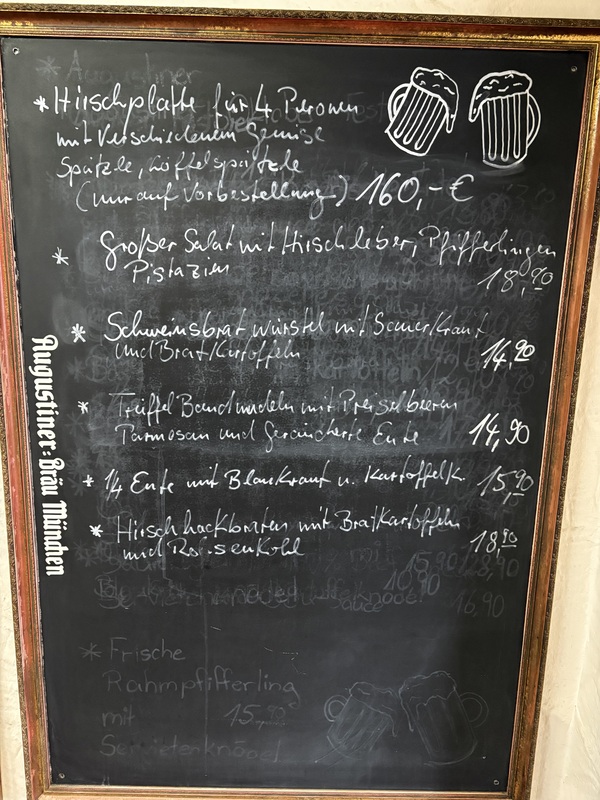 * Hirschplatte für 4 Peronen
mit Verschiedenem Gemüse
Spätzle, Kartoffelspätzle
(nur auf Vorbestellung) 160,- €
* Großer Salat mit Hirschleber, Pfifferlingen
Pistazien 18,90
* Schweinsbratwürstel mit Sauerkraut
und Bratkartoffeln 14,90
* Trüffel Bandnudeln mit Preiselbeeren
Parmesan und Geräucherte Ente 14,90
* 1/4 Ente mit Blaukraut u. Kartoffelk. 15,90
* Hirschhackbraten mit Bratkartoffeln
und Rosenkohl 18,90
16,90
* Frische
Rahmpfifferling
mit 15,90
Servietenknödel
Augustiner-Bräu München